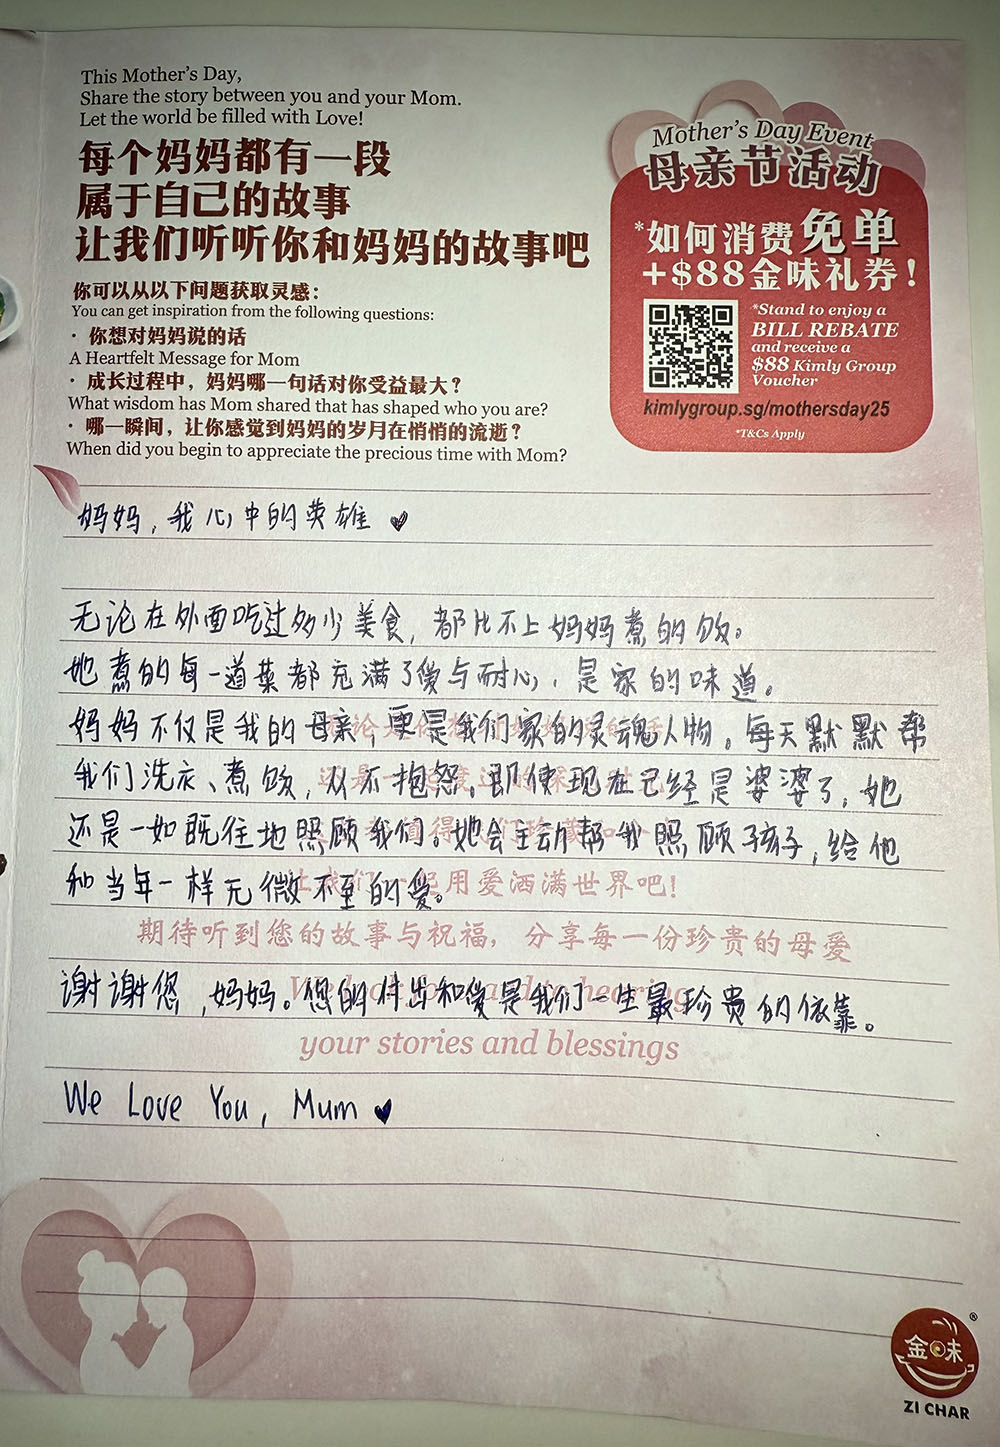 This Mother's Day,
Share the story between you and your Mom.
Let the world be filled with Love!
每个妈妈都有一段
属于自己的故事
让我们听听你和妈妈的故事吧
你可以从以下问题获取灵感：
You can get inspiration from the following questions:
· 你想对妈妈说的话
A Heartfelt Message for Mom
· 成长过程中，妈妈哪一句话对你受益最大？
What wisdom has Mom shared that has shaped who you are?
· 哪一瞬间，让你感觉到妈妈的岁月在悄悄的流逝？
When did you begin to appreciate the precious time with Mom?
Mother's Day Event
母亲节活动
*如何消费免单
+$88金味礼券！
*Stand to enjoy a
BILL REBATE
and receive a
$88 Kimly Group
Voucher
kimlygroup.sg/mothersday25
*T&Cs Apply
妈妈，我心中的英雄 ♥
无论在外面吃过多少美食，都比不上妈妈煮的饭。
她煮的每一道菜都充满了爱与耐心，是家的味道。
妈妈不仅是我的母亲，更是我们家的灵魂人物。每天默默帮
我们洗衣、煮饭，从不抱怨。即使现在已经是婆婆了，她
还是一如既往地照顾我们。她会主动帮我照顾孩子，给他
和当年一样无微不至的爱。
让我们一起用爱洒满世界吧！
期待听到您的故事与祝福，分享每一份珍贵的母爱
谢谢您，妈妈。您的付出和爱是我们一生最珍贵的依靠。
your stories and blessings
We Love You, Mum ♥
金味
®
ZI CHAR